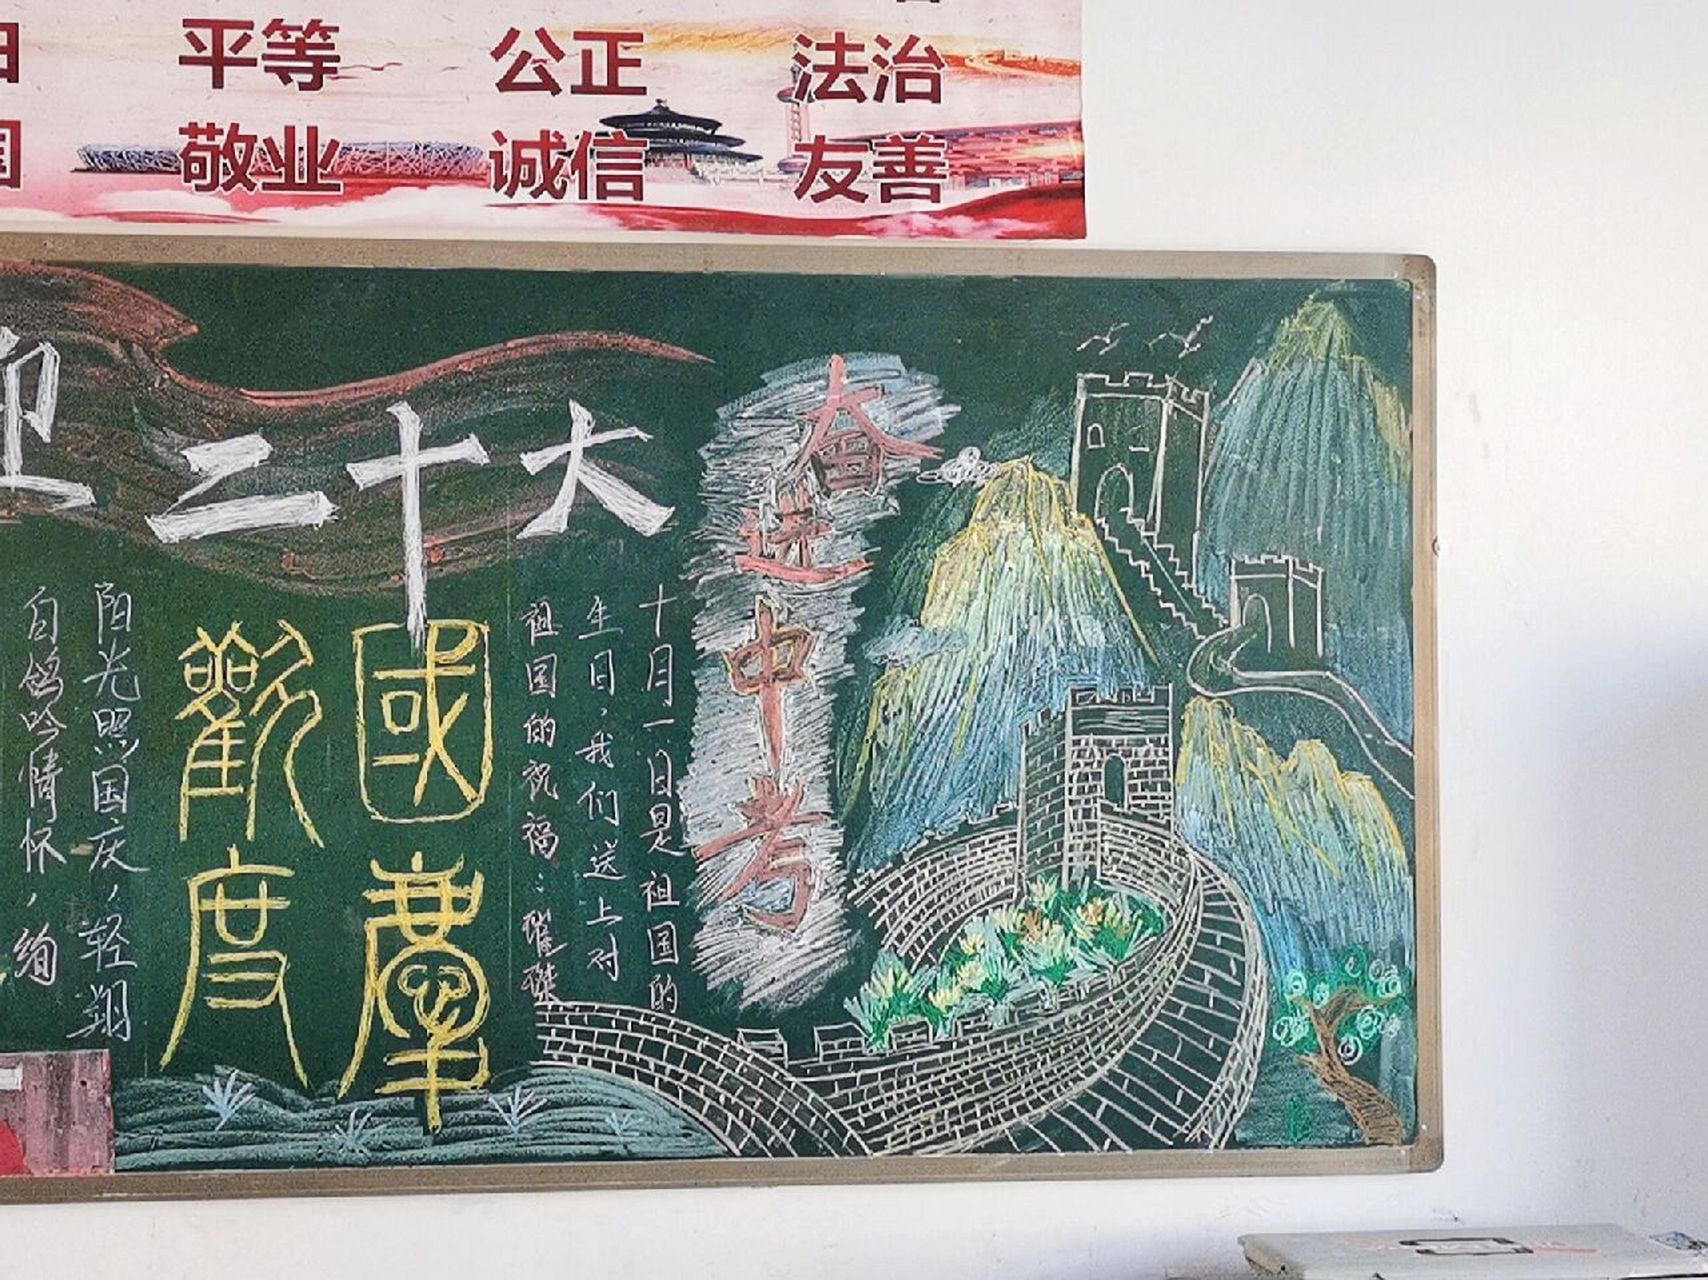 平等 公正 法治
敬业 诚信 友善
迎二十大
奋进中考
十月一日是祖国的
生日,我们送上对
祖国的祝福:璀璨
國慶
歡度
阳光照国庆,轻翔
白鸽吟情怀,绚